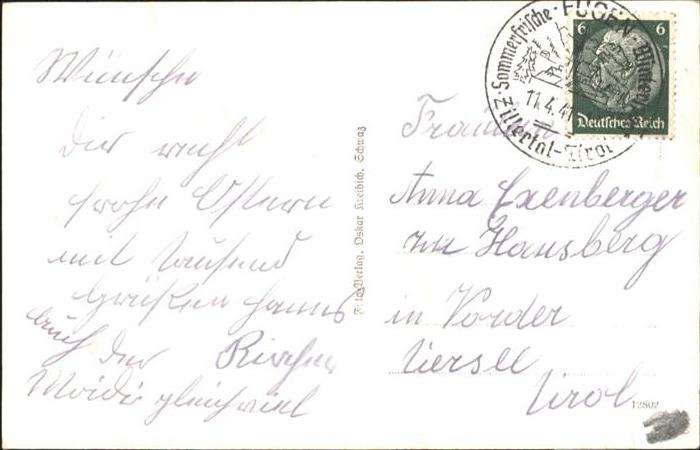 Wünsche
Dir recht
frohe Ostern
mit tausend
Grüßen Hanns
auch der Kirchen
Moidi gleichviel
Verlag, Oskar Schwaz
Sommerfrische · FÜGEN ·
11.4.41
Zillertal-Tirol
6 6
Deutsches Reich
Fräulein
Anna Exenberger
zu Hausberg
in Vorder
tiersee
Tirol
12802